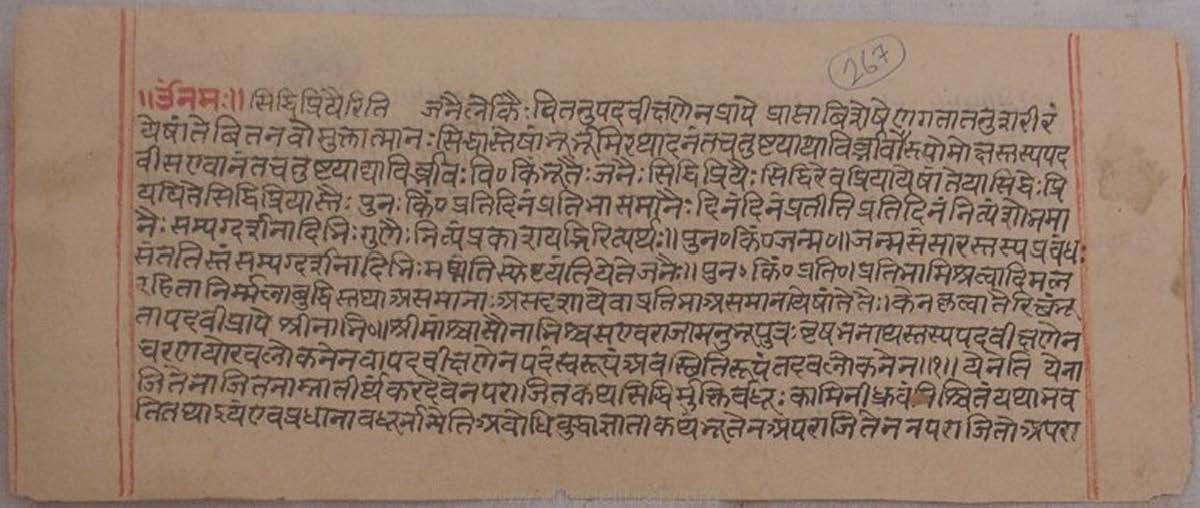 267
॥ॐनमः॥ सिद्धिप्रियैरिति जनैर्लोकैः वितनुपदवीक्षणेन प्रापे प्राप्ता विशेषेण गता तनुशरीरं
येषां ते वितनवो मुक्तात्मानः सिद्धास्तेषां भूर्भूमिरथानंतचतुष्टयाद्याविर्भावोरूपो मोक्षस्तस्य पद
वी स एवानंतचतुष्टयाद्याविर्भावः वि० किंभूतैः जनैः सिद्धिप्रियैः सिद्धिरेव प्रिया येषां तथा सिद्धेः प्रि
याश्चिते सिद्धिप्रियास्तैः पुनः किं० प्रतिदिनं प्रतिभासमानैः दिनंदिनंप्रतीति प्रतिदिनं नित्यं शोभमा
नैः सम्यग्दर्शनादिभिः गुणैः नित्यं प्रकाशयद्भिरित्यर्थः॥ पुन० किं० जन्म०॥ जन्म संसारस्तस्य प्रबंधः
संततिस्तं सम्यग्दर्शनादिभिः मथ्नंति स्फेटयंति ये ते जनैः॥ पुन० किं० प्रति०। प्रतिभामिश्रत्वादिमल
रहिता निर्म्मला बुद्धिस्तया असमानाः असदृशा ये वा प्रतिभा असमाना येषां ते तैः। केन कृत्वा तैरित्थंभू
ता पदवी प्रापे श्रीनाभि०॥ श्रीमांश्चासौ नाभिश्च स एव राजा मनुभूपुत्रः वृषभनाथस्तस्य पदवीक्षणेन
चरणयोरवलोकनेन वा पदवीक्षणेन पदं स्वरूपं अवस्थितिरूपं तदवलोकनेन॥१॥ येनेति येना
जितेनाजितनाम्ना तीर्थकरदेवेन पराजित कथ सिद्धिर्मुक्तिर्वधूः कामिनी ध्रुवं निश्चितं यथा भव
ति तथा इयं एव प्रधाना वधूर्ममेति अबोधि बुद्धा ज्ञाता कथंभूतेन अपराजितेन न पराजितो अपरा